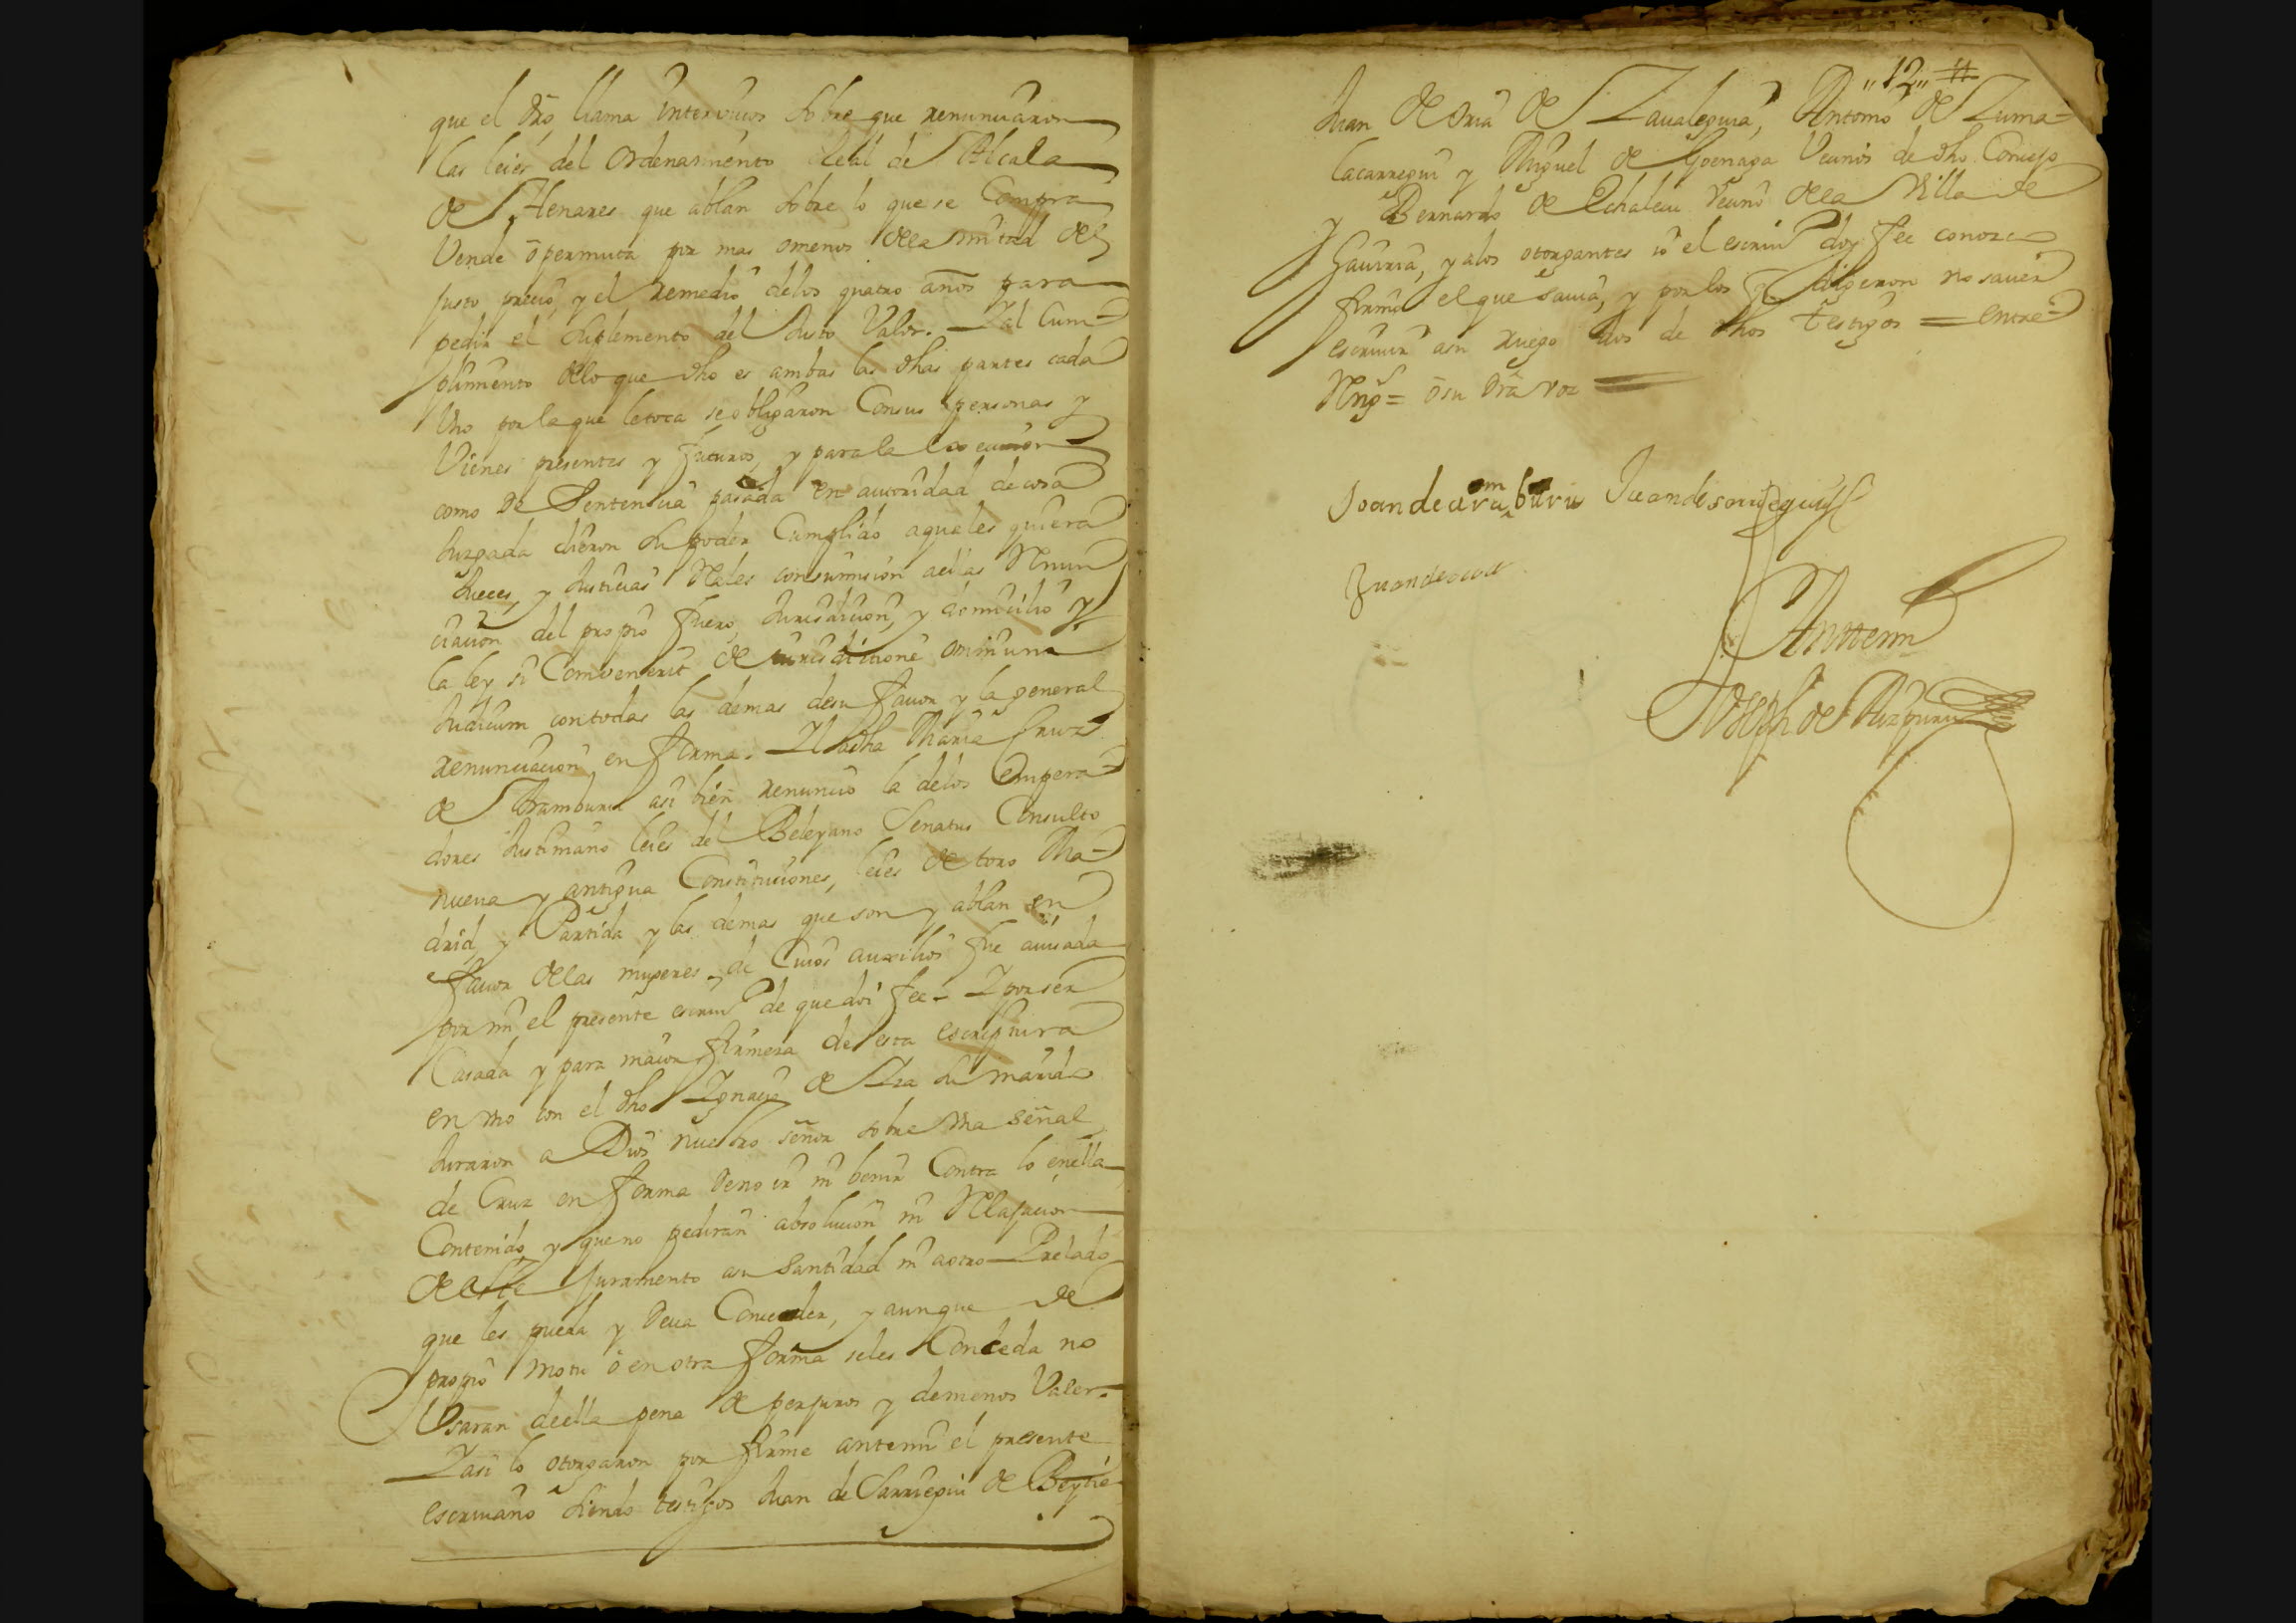 que el dro llama intervivos sobre que renunciaron
las leies del ordenamiento Real de Alcala
de Henares que ablan sobre lo que se Compra
Vende ô permuta por mas o menos dela mitad del
justo precio, y el remedio delos quatro años para
pedir el suplemento del Justo Valor. Y al Cum=
plimiento delo que dho es ambas las dhas partes cada
Uno por la que le toca se obligaron Consus personas y
Vienes presentes y futuros, y para la execucion
como de Sentencia pasada en autoridad de cosa
Juzgada dieron su poder Cumplido aquales quiera
Jueces, y Justicias Rales consumision aellas Renun
ciacion del propio fuero, Jurisdicion, y domicilio y
la ley si Convenerit de jurisditione omnium
Judicum contodas las demas desu favor y la general
renunciacion en forma. Y la dha Maria Cruz
de Aramburu asi bien renuncio la delos Empera=
dores Justiniano leies del Beleyano Senatus Consulto
nueva y antigua Constituciones, leies de toro Ma=
drid, y Partida y las demas que son y ablan en
favor delas mugeres de Cuios auxilios fue avisada
por mi el presente escriuo de que doi fee. Y por ser
Casada y para maior firmeza de esta escriptura
en vno con el dho Ygnacio de Yza su marido
Juraron a Dios nuestro señor sobre vna señal
de Cruz en forma de no ir ni benir Contra lo enella
Contenido, y que no pediran absolucion ni Relajacion
de este juramento asu Santidad ni aotro Prelado
que les pueda y deva Conceder, y aunque de
propio motu ô en otra forma seles Conceda no
Usaran deella pena de perjuros y demenos Valer.
Y asi lo otorgaron por firme antemi el presente
escriuano siendo testigos Juan de Sarriegui de Beytie
"12"
Juan de Oria de Zavaleguia, Antonio de Zuma=
lacarregui y Miguel de Goenaga Vecinos de dho Concejo
y Bernardo de Echalecu vecino dela Villa de
Gaviria, y alos otorgantes io el escriuo doy fee conozco
firmo el que savia, y por los q dijeron no saver
escriuir asu ruego dos de dhos testigos = entre=
Rng= ô su dra voz
Joan de aramburu Juan de sarriegui
Juan de
Antemi
Joseph de Aizpuru